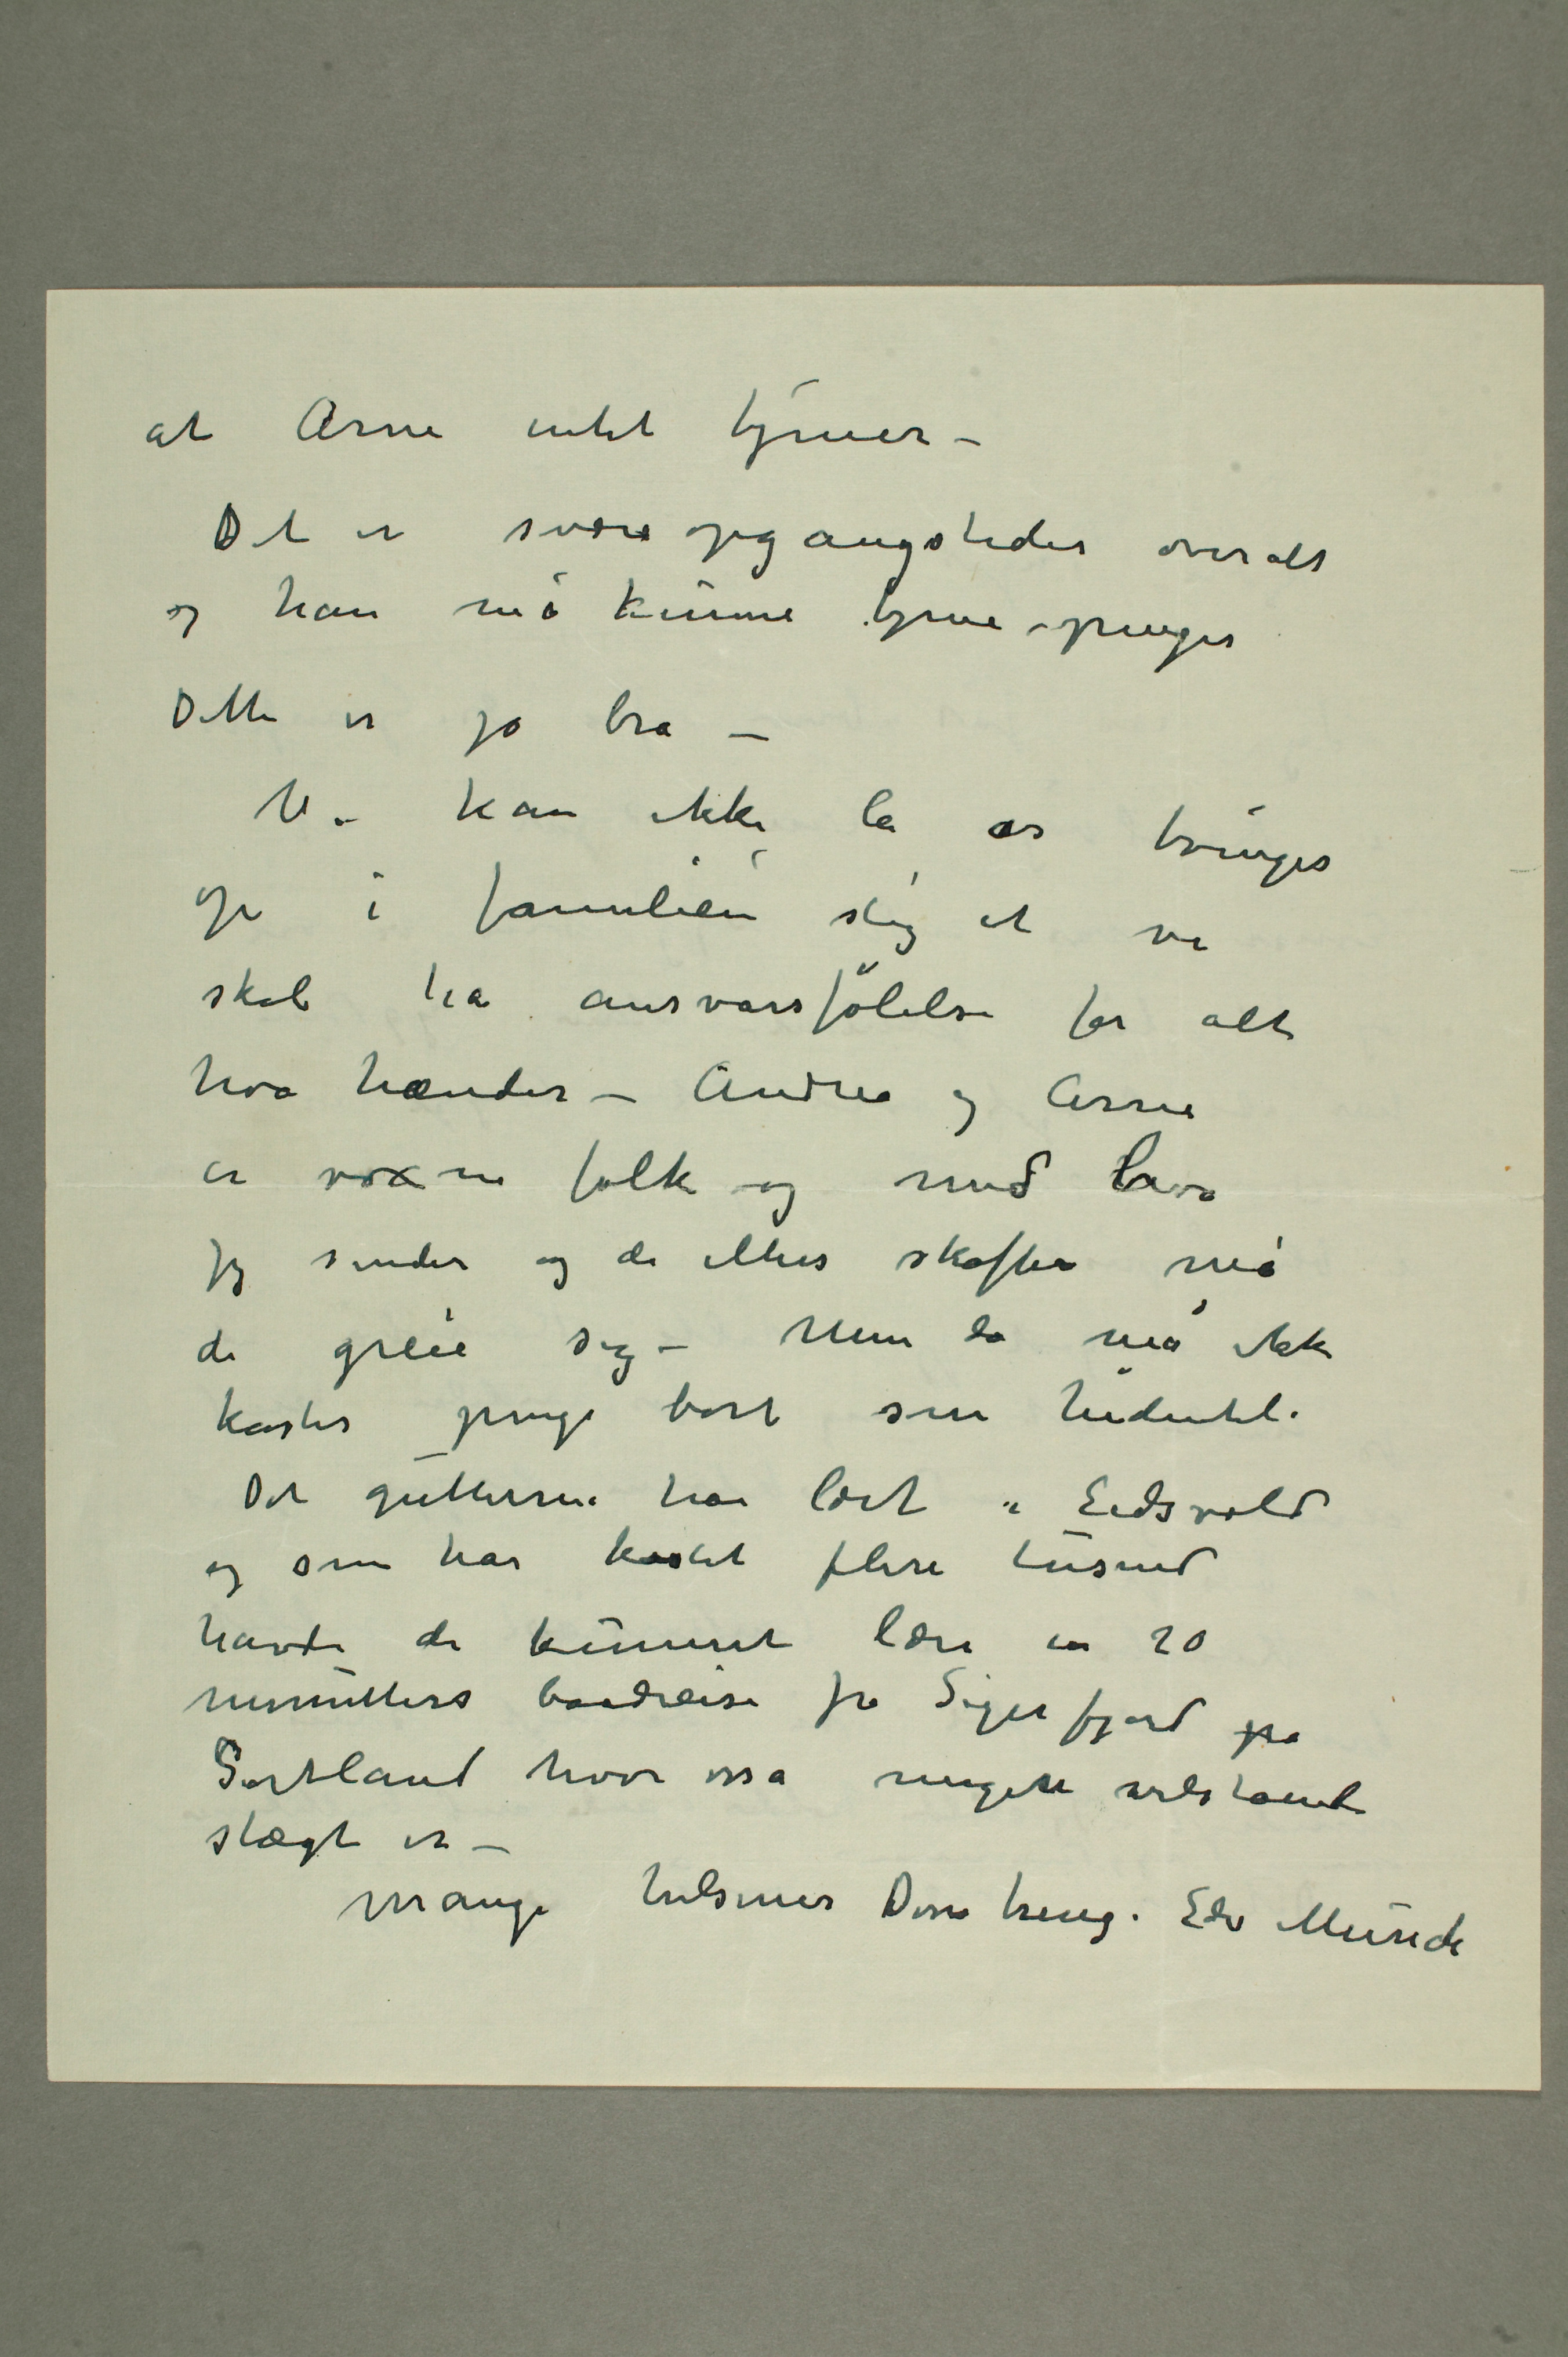 at Arne intet tjener –
Det er svære opgangstider overalt
og han må kunne tjene penger
Dette er jo bra –
Vi kan ikke la os tvinges
op i familien slig at vi
skal ha ansvarsfölelse for alt
hva hænder – Andrea og Arne
er voxne folk og med hva
jeg sender og de ellers skaffer må
de greie sig – Men de må ikke
kaster penge bort som hidentil.
Det gutterne har lært i Eidsvold
og som har kostet flere tusend
havde de kunnet lære en 20
minutters baadreise fra Sigerfjord på
Sortland hvor også megen velstaende
slægt er –
Mange hilsener Din heng. Edv Munch